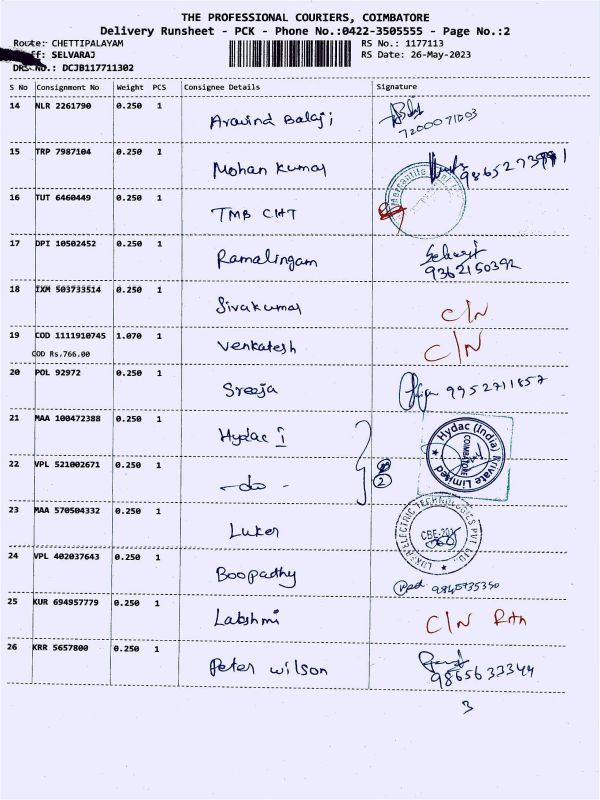 THE PROFESSIONAL COURIERS, COIMBATORE
Delivery Runsheet - PCK - Phone No.:0422-3505555 - Page No.:2
Route: CHETTIPALAYAM RS No.: 1177113
: SELVARAJ RS Date: 26-May-2023
DRS No.: DCJB117711302
S No Consignment No Weight PCS Consignee Details Signature
14 NLR 2261790 0.250 1 Aravind Balaji
7200071003
15 TRP 7987104 0.250 1 Mohan Kumar
16 TUT 6460449 0.250 1 TMB CHT Mercantile
17 DPI 10502452 0.250 1 Ramalingam Selvaraj
9362150392
18 IXM 503733514 0.250 1 Sivakumar C/N
19 COD 1111910745 1.070 1 Venkatesh C/N
COD Rs.766.00
20 POL 92972 0.250 1 Sreeja 9952711857
21 MAA 100472388 0.250 1 Hydac I Hydac (India) Private Limited COIMBATORE
22 VPL 521002671 0.250 1 -do- 2
23 MAA 570504332 0.250 1 Luker LUKER ELECTRIC TECHNOLOGIES PVT. LTD. CBE-201
24 VPL 402037643 0.250 1 Boopathy 9845735350
25 KUR 694957779 0.250 1 Lakshmi C/N Rtn
26 KRR 5657800 0.250 1 Peter Wilson
9865633344
3